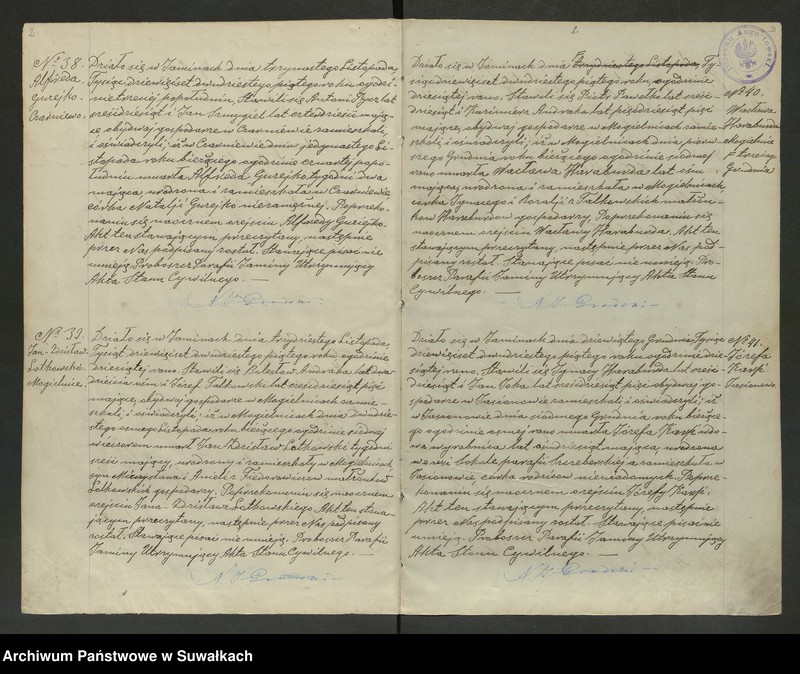 2
No. 38.
Alfreda
Gurejko
Czarniewo.
Działo się w Jaminach dnia trzynastego Listopada,
Tysiąc dziewięćset dwudziestego piątego roku o godzi-
nie trzeciej popołudniu, Stawili się Antoni lat
sześćdziesiąt i Jan lat czterdzieści mają-
ce obydwaj gospodarze w Czarniewie zamieszkali,
i oświadczyli, iż w Czarniewie dnia jedynastego Li-
stopada roku bieżącego o godzinie czwartej popo-
łudniu umarła Alfreda Gurejko, tygodni dwa
mająca urodzona i zamieszkała w Czarniewie
córka Natalji Gurejko niezamężnej. Po przeko-
naniu się naocznem o zejściu Alfredy Gurejko.
Akt ten stawającym przeczytany, następnie
przez Nas podpisany został. Stawające pisać nie
umieją. Proboszcz Parafii Jaminy Utrzymujący
Akta Stanu Cywilnego.
No. 39.
Jan-Zdzisław
Łotkowski
Mogielnice.
Działo się w Jaminach dnia trzydziestego Listopada,
Tysiąc dziewięćset dwudziestego piątego roku o godzinie
dziesiątej rano. Stawili się Bolesław Andraka lat dwa-
dzieścia ośm i Józef Falkowski lat sześćdziesiąt pięć
mające, obydwaj gospodarze w Mogielnicach zamie-
szkali, i oświadczyli, iż w Mogielnicach dnia dwudzie-
stego osmego Listopada roku bieżącego o godzinie siódmej
wieczorem umarł Jan Zdzisław Łotkowski tygodni
sześć mający, urodzony i zamieszkały w Mogielnicach
syn Mieczysława i Anieli z Fiedorowiczow małżonków
Łotkowskich gospodarzy. Po przekonaniu się naocznem
o zejściu Jana-Zdzisława Łotkowskiego Akt ten stawa-
jącym przeczytany, następnie przez Nas podpisany
został. Stawające pisać nie umieją. Proboszcz Parafii
Jaminy Utrzymujący Akta Stanu Cywilnego.
2
No. 40.
Wacława
Haraburda
Mogielnice
Grudnia
Działo się w Jaminach dnia Trzydziestego Listopada, Ty-
siąc dziewięćset dwudziestego piątego roku, o godzinie
dziesiątej rano. Stawili się Piotr Pawełko lat sześć-
dziesiąt i Kazimierz Andraka lat pięćdziesiąt pięć
mające, obydwaj gospodarze w Mogielnicach zamie-
szkali i oświadczyli, iż w Mogielnicach dnia pierw-
szego Grudnia roku bieżącego o godzinie siódmej
rano umarła Wacława Haraburda lat osm
mająca, urodzona i zamieszkała w Mogielnicach,
córka Ignacego i Rozalji z Falkowskich małżon-
ków Haraburdow gospodarzy. Po przekonaniu się
naocznem o zejściu Wacławy Haraburda. Akt ten
stawającym przeczytany, następnie przez Nas pod-
pisany został. Stawające pisać nie umieją. Pro-
boszcz Parafii Jaminy Utrzymujący Akta Stanu
Cywilnego.
No. 41.
Józefa
Karp
Jasionowo.
Działo się w Jaminach dnia dziewiątego Grudnia, Tysiąc
dziewięćset dwudziestego piątego roku o godzinie dzie-
siątej rano, Stawili się Ignacy Haraburda lat sześć-
dziesiąt i Jan lat sześćdziesiąt pięć obydwaj go-
spodarze w Jasionowie zamieszkali i oświadczyli, iż
w Jasionowie dnia siódmego Grudnia roku bieżące-
go o godzinie osmej rano umarła Józefa Karp wdo-
wa wyrobnica lat mająca, urodzona
we wsi parafii Szczeberskiej a zamieszkała w
Jasionowie, córka rodziców niewiadomych. Po prze-
konaniu się naocznem o zejściu Józefy Karp.
Akt ten stawającym przeczytany, następnie
przez Nas podpisany został. Stawające pisać nie
umieją. Proboszcz Parafii Jaminy Utrzymujący
Akta Stanu Cywilnego.
Archiwum Państwowe w Suwałkach